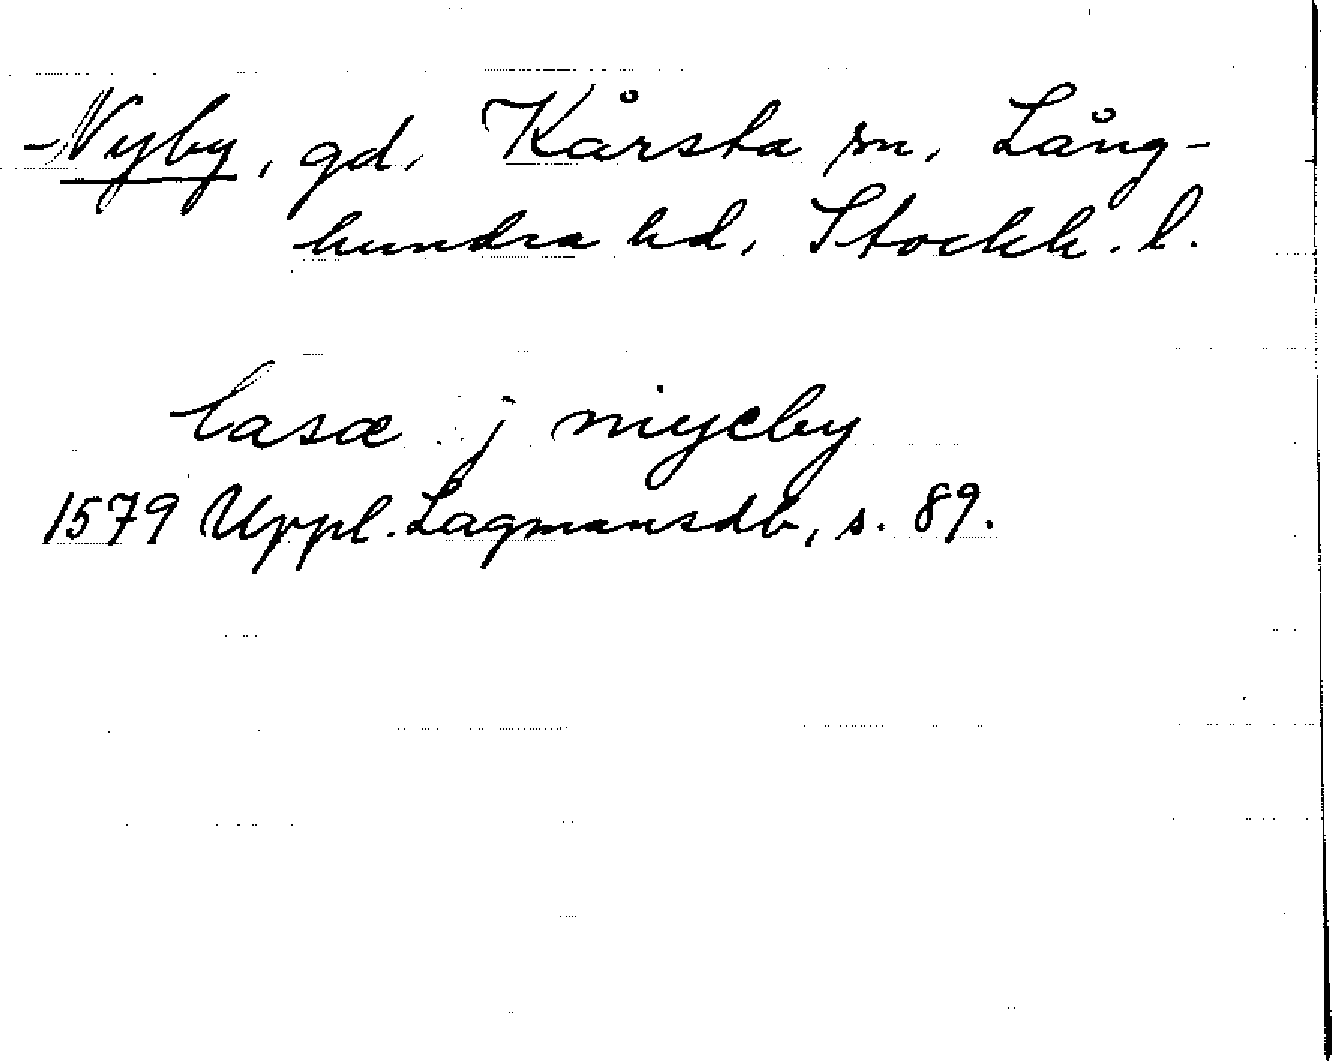 Nyby, gd, Kårsta sn, Lång-
hundra hd, Stockh. l.
lasæ j nyeby
1579 Uppl. Lagmansdb, s. 89.